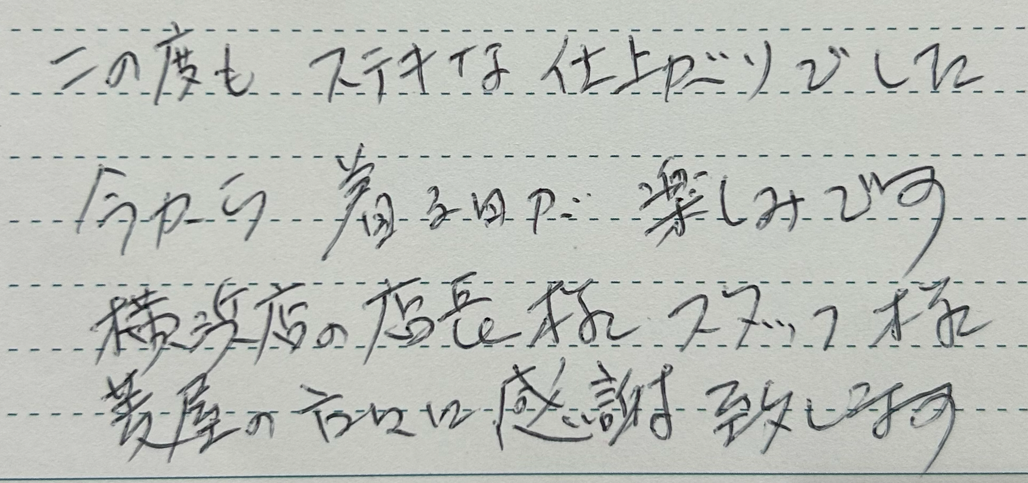 この度も ステキな 仕上がりでした
今から 着る日が 楽しみです
横浜店の店長様 スタッフ様
菱屋の方々に感謝致します